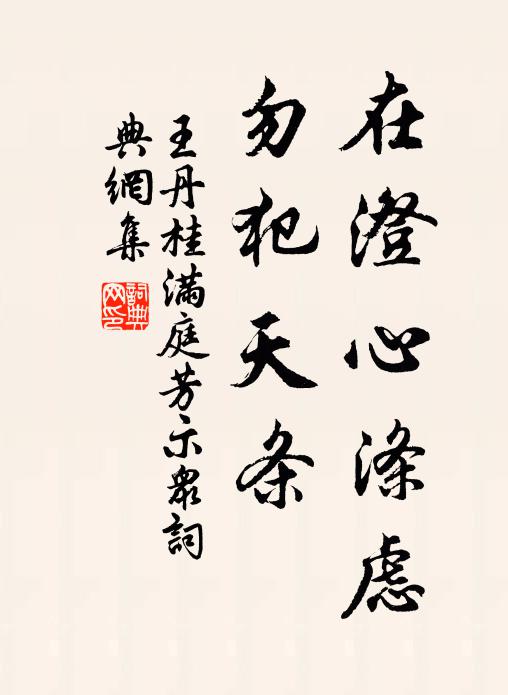 在澄心涤慮
勿犯天条
王丹桂滿庭芳示眾詞
典網集
詞典网印